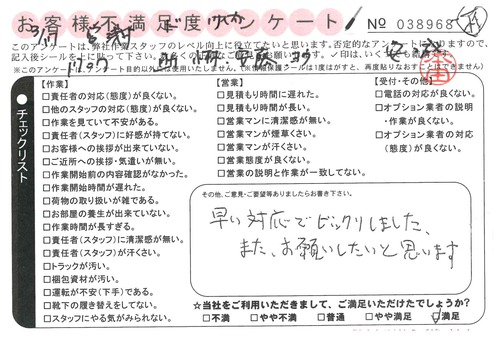 お客様不満足度アンケート
№ 038968
このアンケートは、弊社作業スタッフのレベル向上に役立てたいと思います。否定的なアンケートは
※このアンケートは、アンケート目的以外では使用いたしません。
チェックリスト
【作業】
□責任者の対応(態度)が良くない。
□他のスタッフの対応(態度)が良くない。
□作業を見ていて不安がある。
□責任者(スタッフ)に好感が持てない。
□お客様への挨拶が出来ていない。
□ご近所への挨拶・気遣いが無い。
□作業開始前の内容確認がなかった。
□作業開始時間が遅れた。
□荷物の取り扱いが雑である。
□お部屋の養生が出来ていない。
□作業時間が長すぎる。
□責任者(スタッフ)に清潔感が無い。
□責任者(スタッフ)が汗くさい。
□トラックが汚い。
□梱包資材が汚い。
□運転が不安(下手)である。
□靴下の履き替えをしてない。
□スタッフにやる気がみられない。
【営業】
□見積もり時間に遅れた。
□見積もり時間が長い。
□営業マンに清潔感が無い。
□営業マンが煙草くさい。
□営業マンが汗くさい。
□営業態度が良くない。
□営業の説明と作業が一致してない。
【受付・その他】
□電話の対応が良くない。
□オプション業者の説明
・作業が良くない。
□オプション業者の対応
(態度)が良くない。
その他、ご意見・ご要望等ありましたらお書き下さい。
早い対応でビックリしました、
また、お願いしたいと思います
☆当社をご利用いただきまして、ご満足いただけたでしょうか?
□不満 □やや不満 □普通 □やや満足 ☑満足